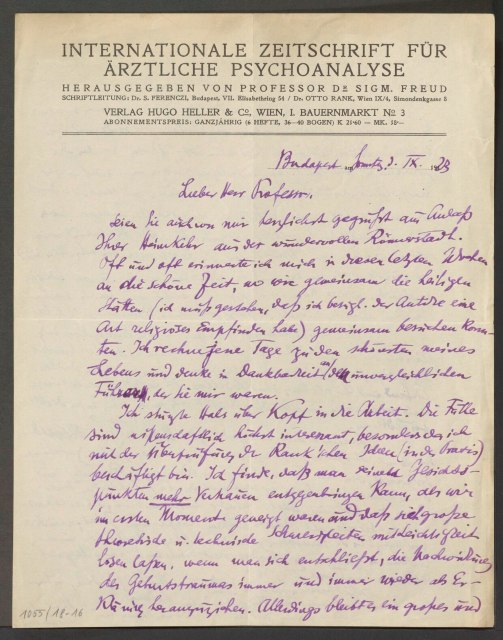 INTERNATIONALE ZEITSCHRIFT FÜR
ÄRZTLICHE PSYCHOANALYSE
HERAUSGEGEBEN VON PROFESSOR DR SIGM. FREUD
SCHRIFTLEITUNG: Dr. S. FERENCZI, Budapest, VII. Elisabethring 54 / Dr. OTTO RANK, Wien IX/4, Simondenkgasse 8
VERLAG HUGO HELLER & Co, WIEN, I. BAUERNMARKT No 3
ABONNEMENTSPREIS: GANZJÄHRIG (6 HEFTE, 36–40 BOGEN) K 21·60 = MK. 18·—
Budapest IX. 1923
Lieber Herr Professor.
Seien Sie auch von mir herzlichst gegrüßt aus Anlaß
Ihrer Heimkehr aus der wundervollen Römerstadt.
Oft und oft erinnerte ich mich in diesen letzten Wochen
an die schöne Zeit, wo wir gemeinsam die heiligen
Stätten (ich muß gestehen, daß ich bezügl. der Antike eine
Art religiöses Empfinden habe) gemeinsam besuchen konn-
ten. Ich rechne jene Tage zu den schönsten meines
Lebens und denke in Dankbarkeit an den unvergleichlichen
Führer, der Sie mir waren.
Ich stürzte Hals über Kopf in die Arbeit. Die Fälle
sind wissenschaftlich höchst interessant, besonders da ich
mit der Überprüfung der Rank'schen Ideen (in der Praxis)
beschäftigt bin. Ich finde, daß man seinen Gesichts-
punkten mehr Vertrauen entgegenbringen kann, als wir
im ersten Moment geneigt waren und daß sich große
theoretische u. technische Schwierigkeiten mit Leichtigkeit
lösen lassen, wenn man sich entschließt, die Nachwirkung
des Geburtstraumas immer und immer wieder als Er-
klärung heranzuziehen. Allerdings bleibt ein großes und
1055/12-16